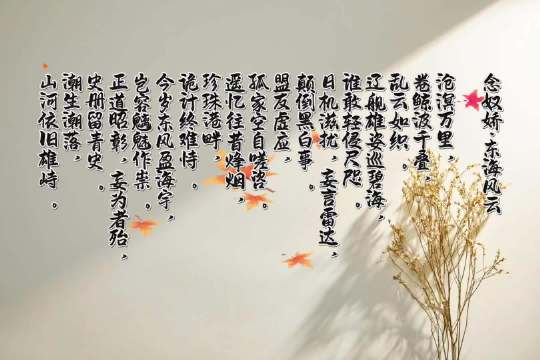 念奴娇·东海风云
沧溟万里，
卷鲸波千叠，
乱云如织。
辽舰雄姿巡碧海，
谁敢轻侵尺咫。
日机滋扰，妄言雷达，
颠倒黑白事。
盟友虚应，
孤家空自嗟咨。
遥忆往昔烽烟，
珍珠港畔，
诡计终难恃。
今岁东风盈海宇，
岂容魑魅作祟。
正道昭彰，妄为者殆，
史册留青史。
潮生潮落，
山河依旧雄峙。